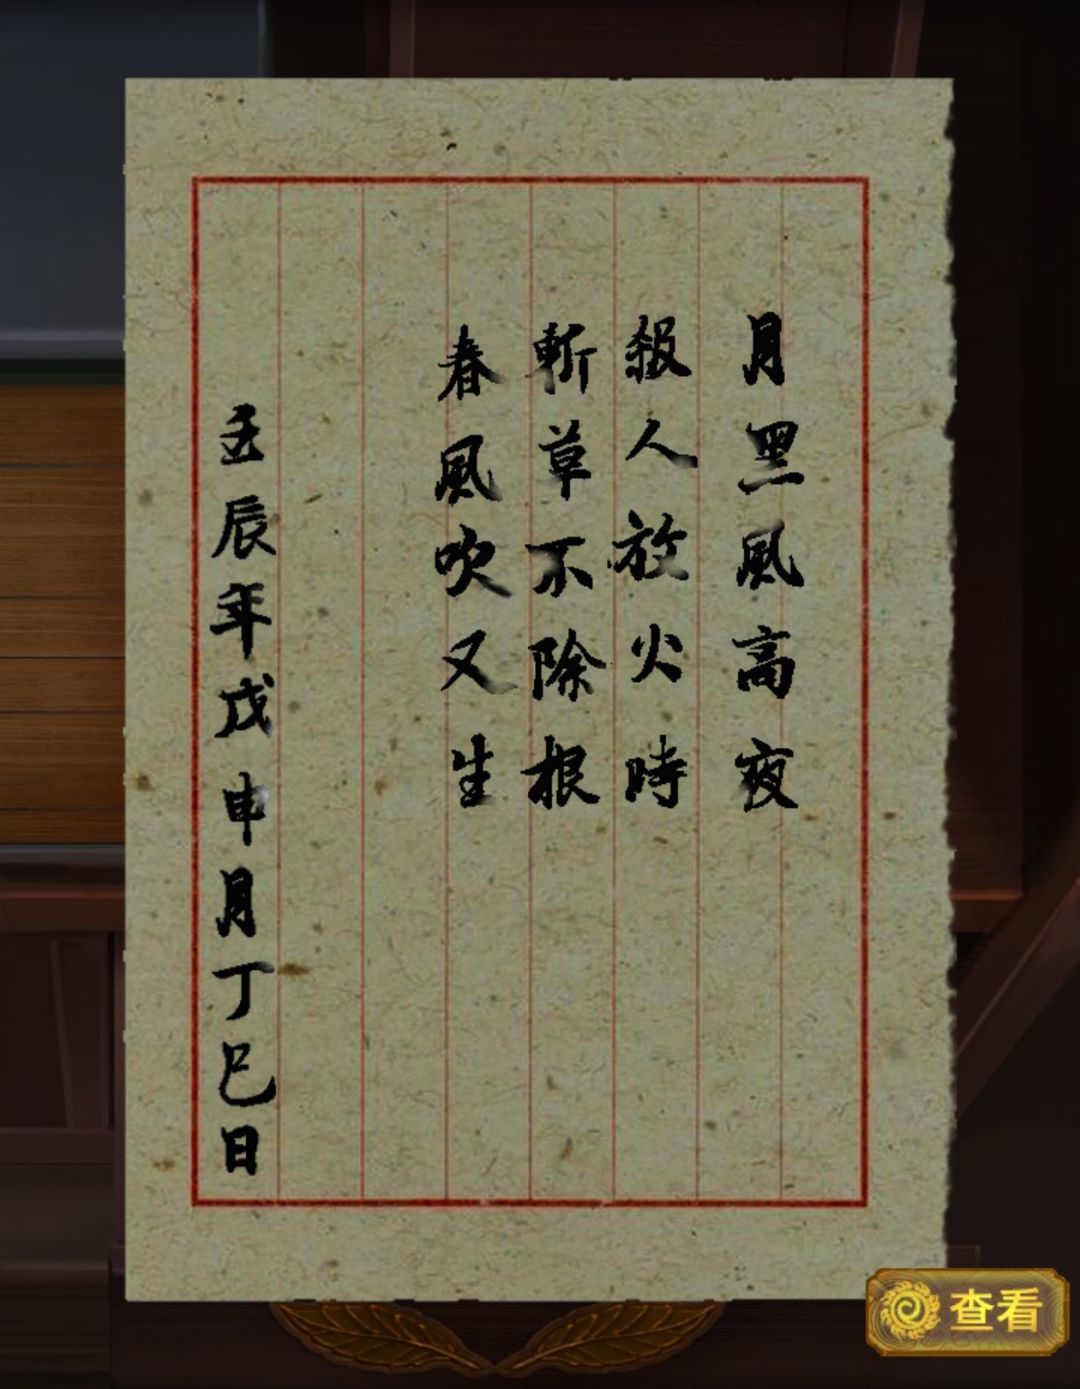 月黑風高夜
殺人放火時
斬草不除根
春風吹又生
壬辰年戊申月丁巳日
查看